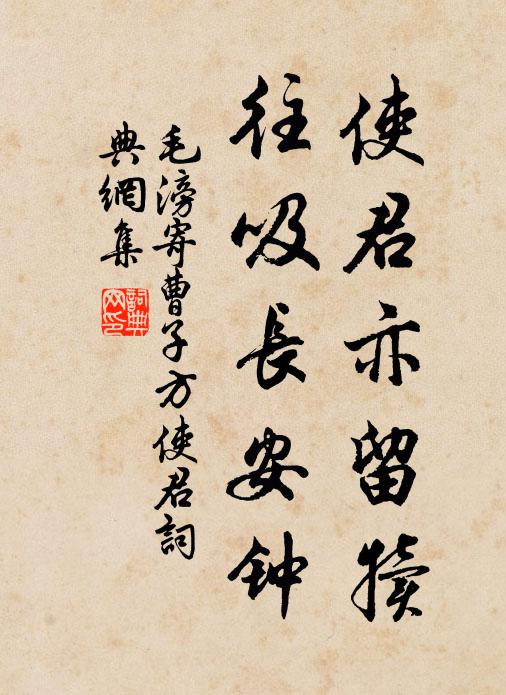 使君亦留犊
往吸長安钟
毛滂寄曹子方使君詞
典網集
詞典网印